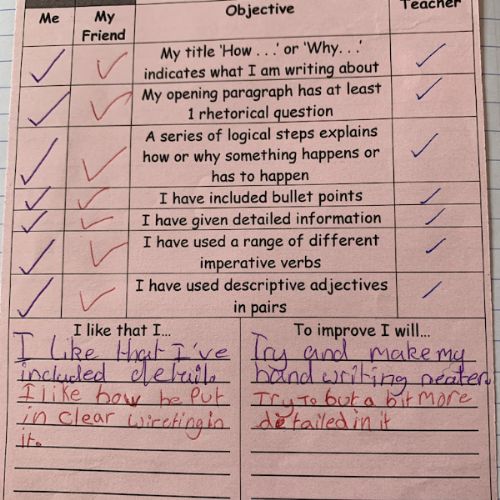 Me My Friend Objective Teacher
My title 'How . . .' or 'Why. . .'
indicates what I am writing about
My opening paragraph has at least
1 rhetorical question
A series of logical steps explains
how or why something happens or
has to happen
I have included bullet points
I have given detailed information
I have used a range of different
imperative verbs
I have used descriptive adjectives
in pairs
I like that I...
I like that I've
included detail.
I like how he Put
in clear wirctingin
it.
To improve I will...
Try and make my
hand writing neater.
Try To but a bit more
detailed in it